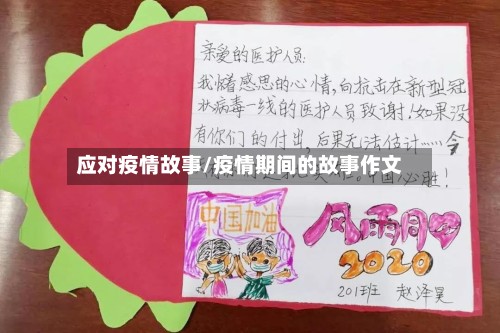 亲爱的医护人员:
我怀着感恩的心情,向抗击在新型冠
状病毒一线的医护人员致谢!如果没
有你们的付出,后果无法估计……今
应对疫情故事/疫情期间的故事作文
中国必胜!
中国加油
风雨同
2020
201班 赵泽昊